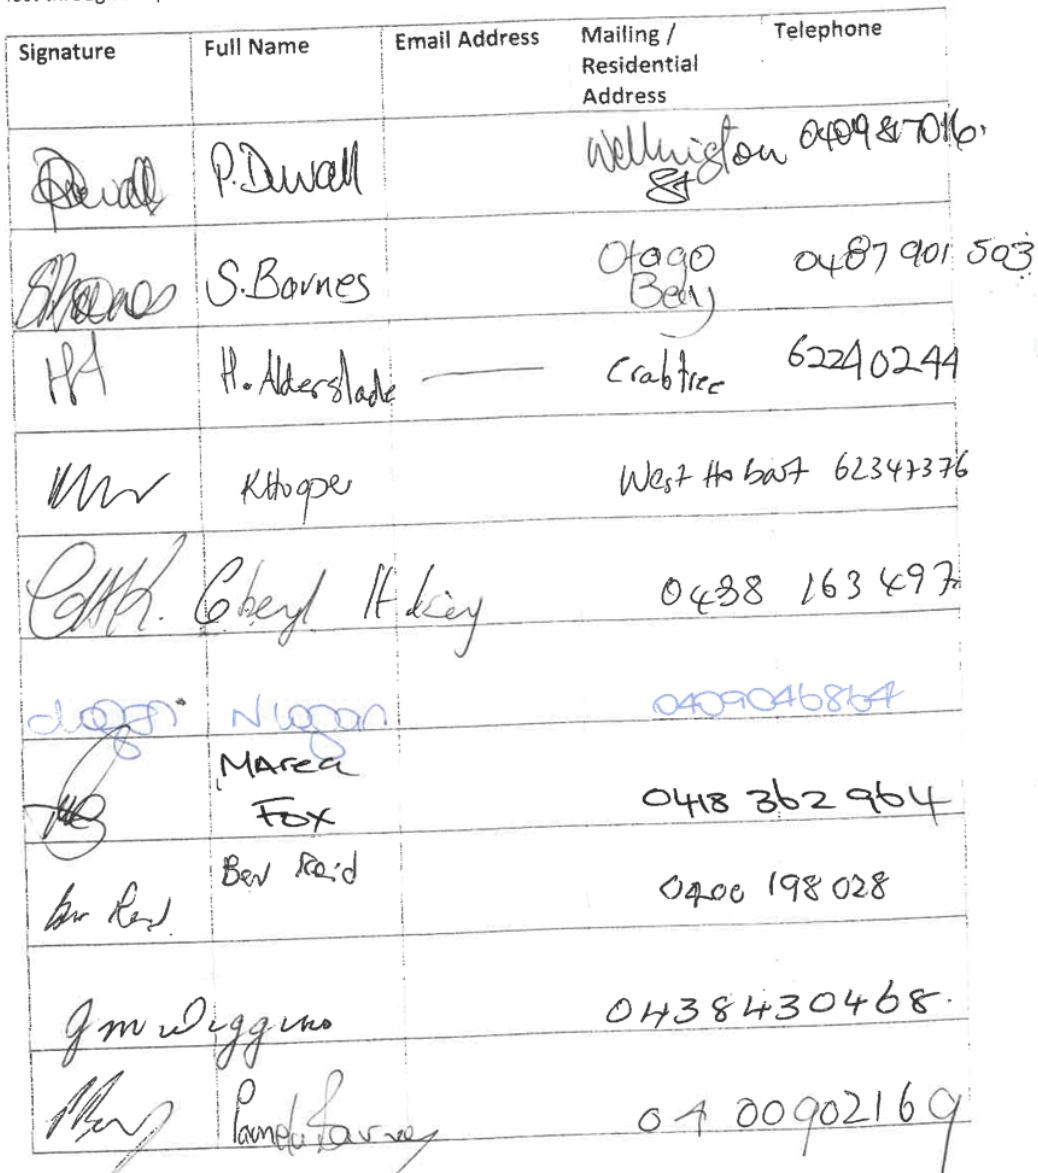 Signature Full Name Email Address Mailing / Residential Address Telephone
P. Duvall Wellington St
S. Barnes Otago Bay 0487 901 503
HA H. Alderslade — Crabtree 62240244
K Hooper West Hobart 62347376
Cheryl 0438 163 497
N Logan 0409046864
Marea Fox 0418 362 964
Bev Reid 0400 198 028
J m Wiggins 0438430468.
Pamela 0400902169